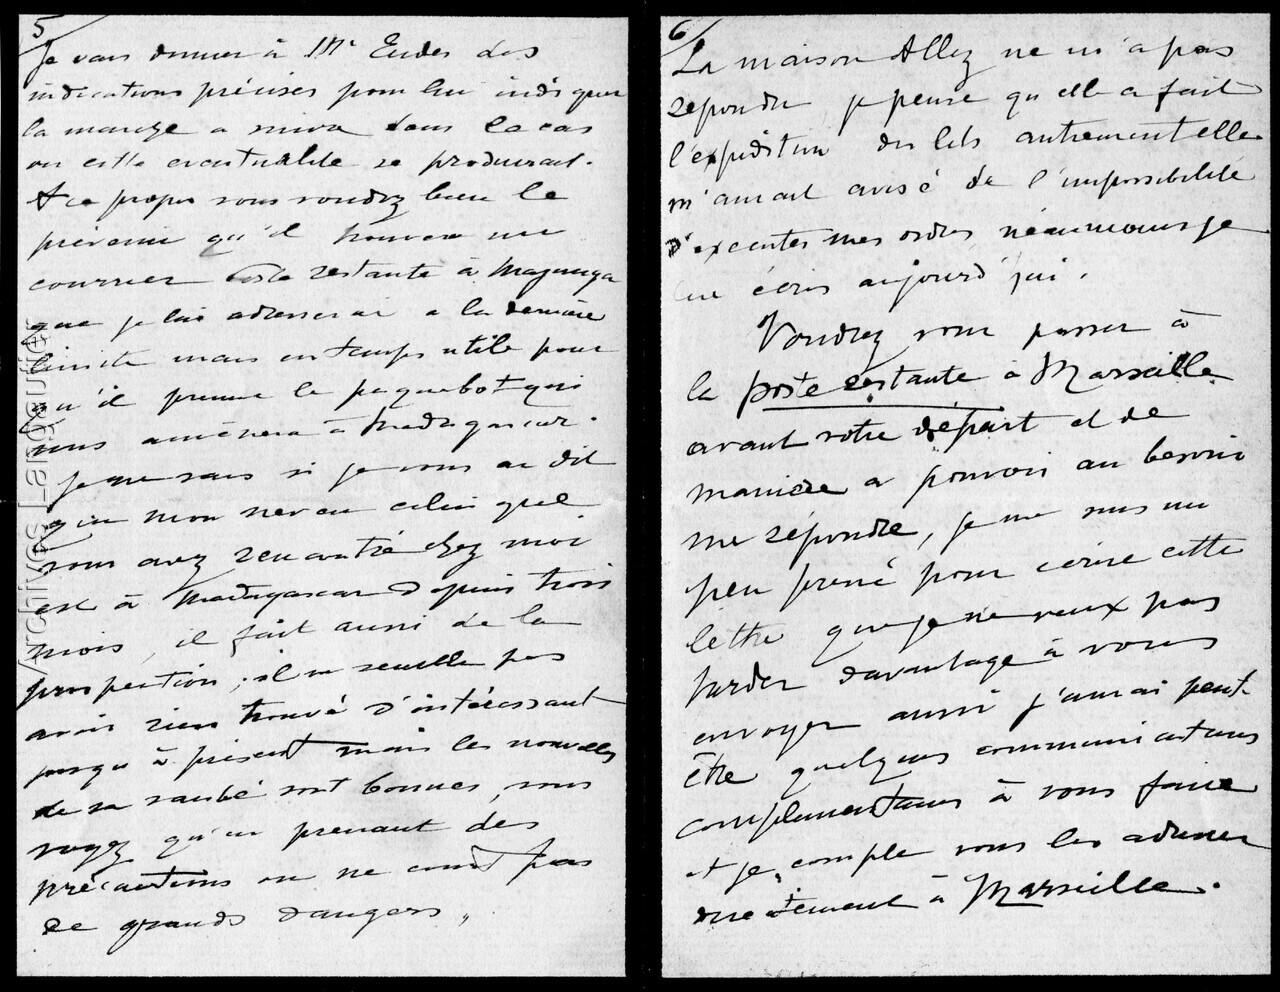 5
Je vais donner à Mr Eudes des
indications précises pour lui indiquer
la marche a suivre dans le cas
ou cette eventualité se produirait.
A ce propos vous voudrez bien le
prévenir qu'il trouvera un
courrier Poste restante à Majunga
que je lui adresserai a la dernière
limite mais en temps utile pour
qu'il prenne le paquebot qui
vous amènera à Madagascar.
Je ne sais si je vous ai dit
qu'un mon neveu celui que
vous avez rencontré chez moi
est à Madagascar depuis trois
mois, il fait aussi de la
prospection, il ne semble pas
avoir rien trouvé d'intéressant
jusqu'à présent mais les nouvelles
de sa santé sont bonnes, vous
voyez qu'en prenant des
précautions on ne court pas
de grands dangers,,
6
La maison Allez ne m'a pas
répondu je pense qu'elle a fait
l'expédition des lits autrement elle
m'aurait avisé de l'impossibilité
d'executer mes ordres néanmoins je
lui écris aujourd'hui.
Voudrez vous passer à
la poste restante à Marseille
avant votre départ et de
manière a pouvoir au besoin
me répondre, je me suis un
peu pressé pour écrire cette
lettre que je ne veux pas
tarder davantage à vous
envoyer aussi j'aurai peut-
être quelques communications
complémentaires à vous faire
et je compte vous les adresser
directement à Marseille.
Archives Languillet